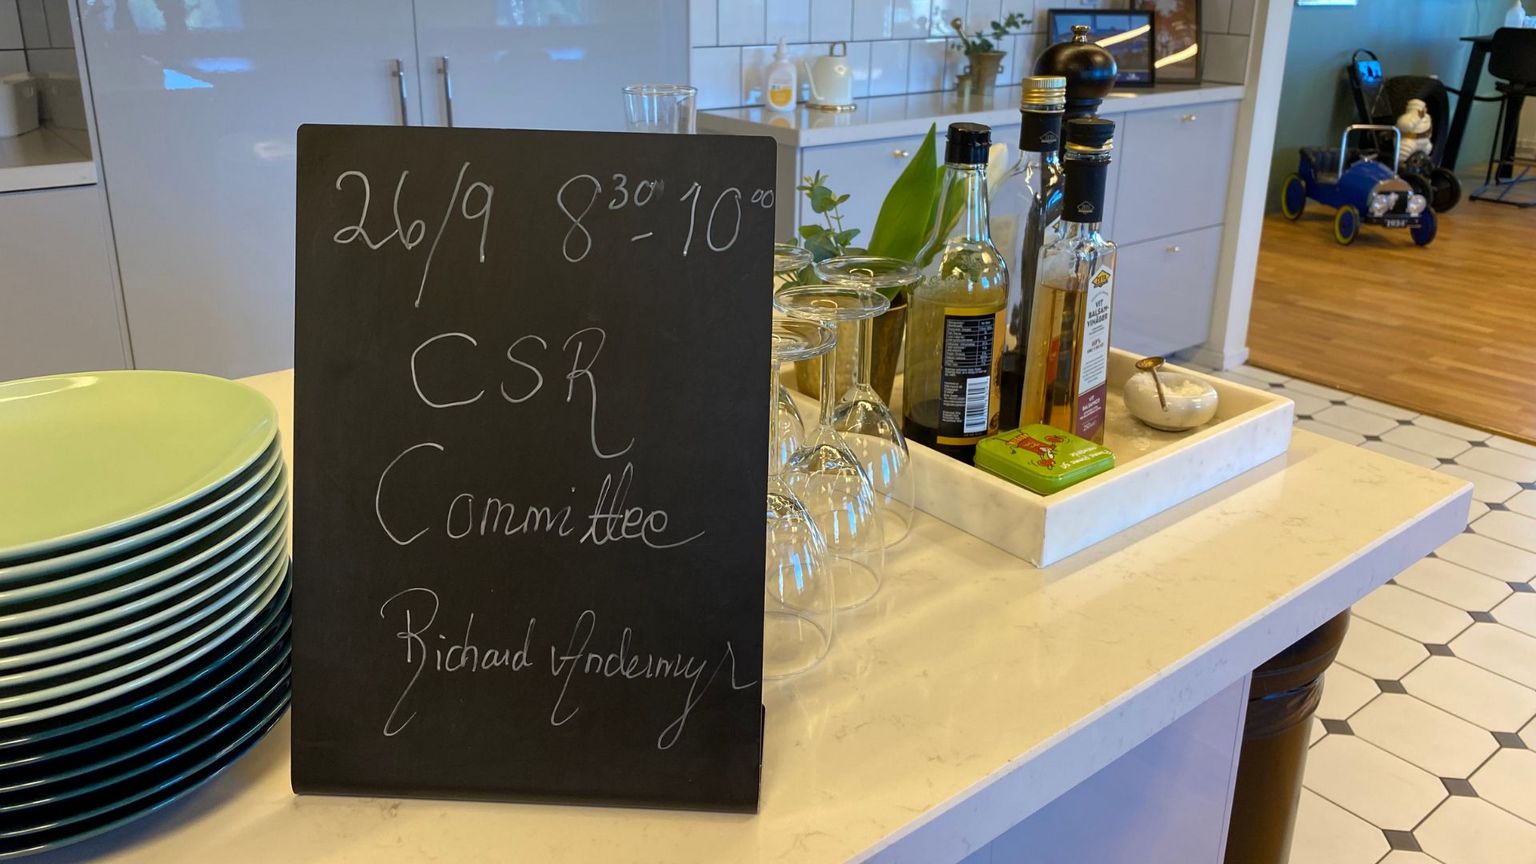 26/9 8³⁰ - 10⁰⁰
CSR
Committee
Richard Andermyr
VIT
BALSAM-
VINÄGER
1934